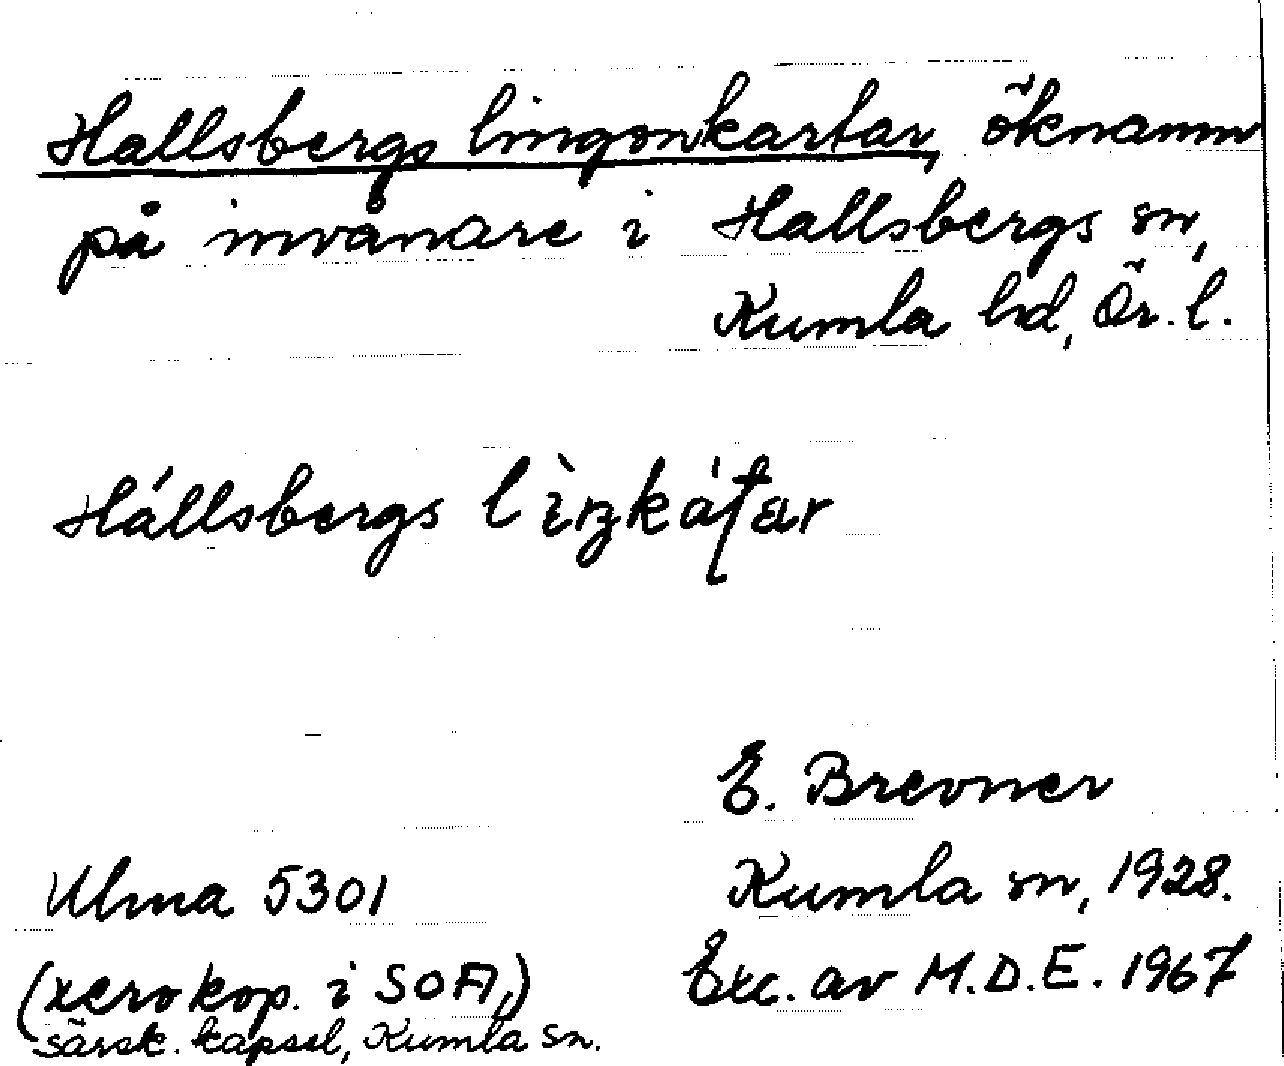 Hallsbergs lingonkartar, öknamn
på invånare i Hallsbergs sn,
Kumla hd, Ör. l.
Hállsbergs
E. Brevner
Ulma 5301 Kumla sn, 1928.
(xerokop. i SOFI, Exc. av M.D.E. 1967
särsk. kapsel, Kumla sn.)